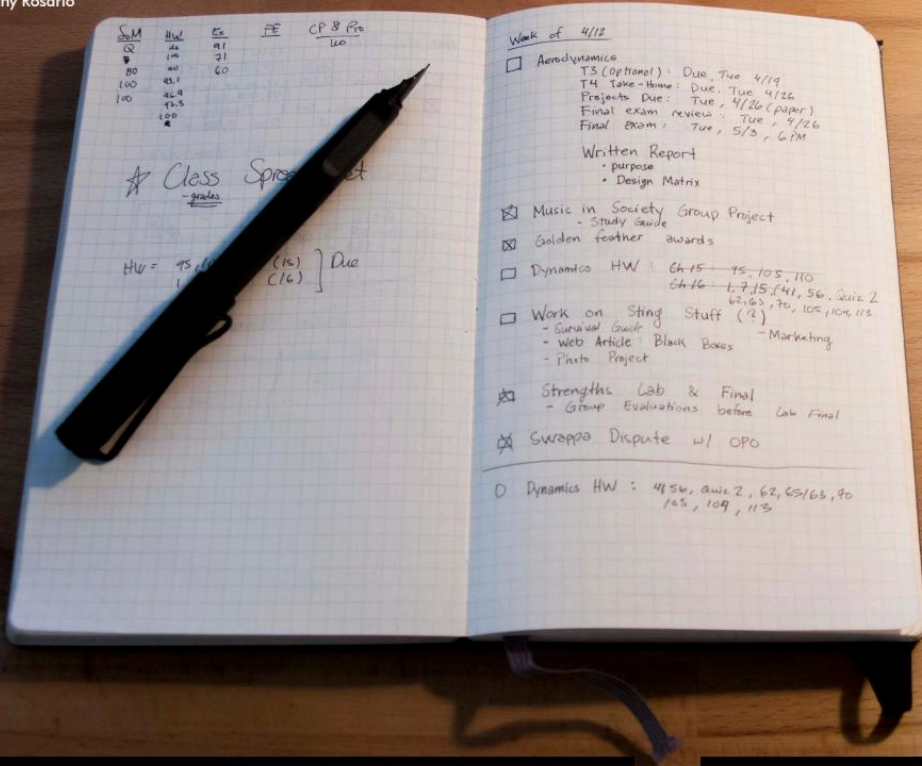 ny Rosario
SoM HW Ex FE CP 8 Pro
Q 91 100
100 71
80 90 60
100 95.1
100 96.9
97.3
100
☆ Class
- grades
HW = 95, (15) Due
1, (16)
Week of 4/12
☐ Aerodynamics
T3 (optional) : Due, Tue 4/19
T4 Take-Home : Due, Tue 4/26
Projects Due : Tue, 4/26 (paper)
Final exam review : Tue, 4/26
Final Exam : Tue, 5/3, 6 PM
Written Report
• purpose
• Design Matrix
☒ Music in Society Group Project
- Study Guide
☒ Golden feather awards
☐ Dynamics HW : Ch 15 : 95, 105, 110
Ch 16 : 1, 7, 15, (41, 56, Quiz 2
62, 65, 70, 105, 109, 113
☐ Work on Sting Stuff (?)
- Survival Guide - Marketing
- Web Article : Black Boxes
- Photo Project
☒ Strengths Lab & Final
- Group Evaluations before Lab Final
☒ Swappa Dispute w/ OPO
Dynamics HW : 41 56, Quiz 2, 62, 65/63, 70
105, 109, 113